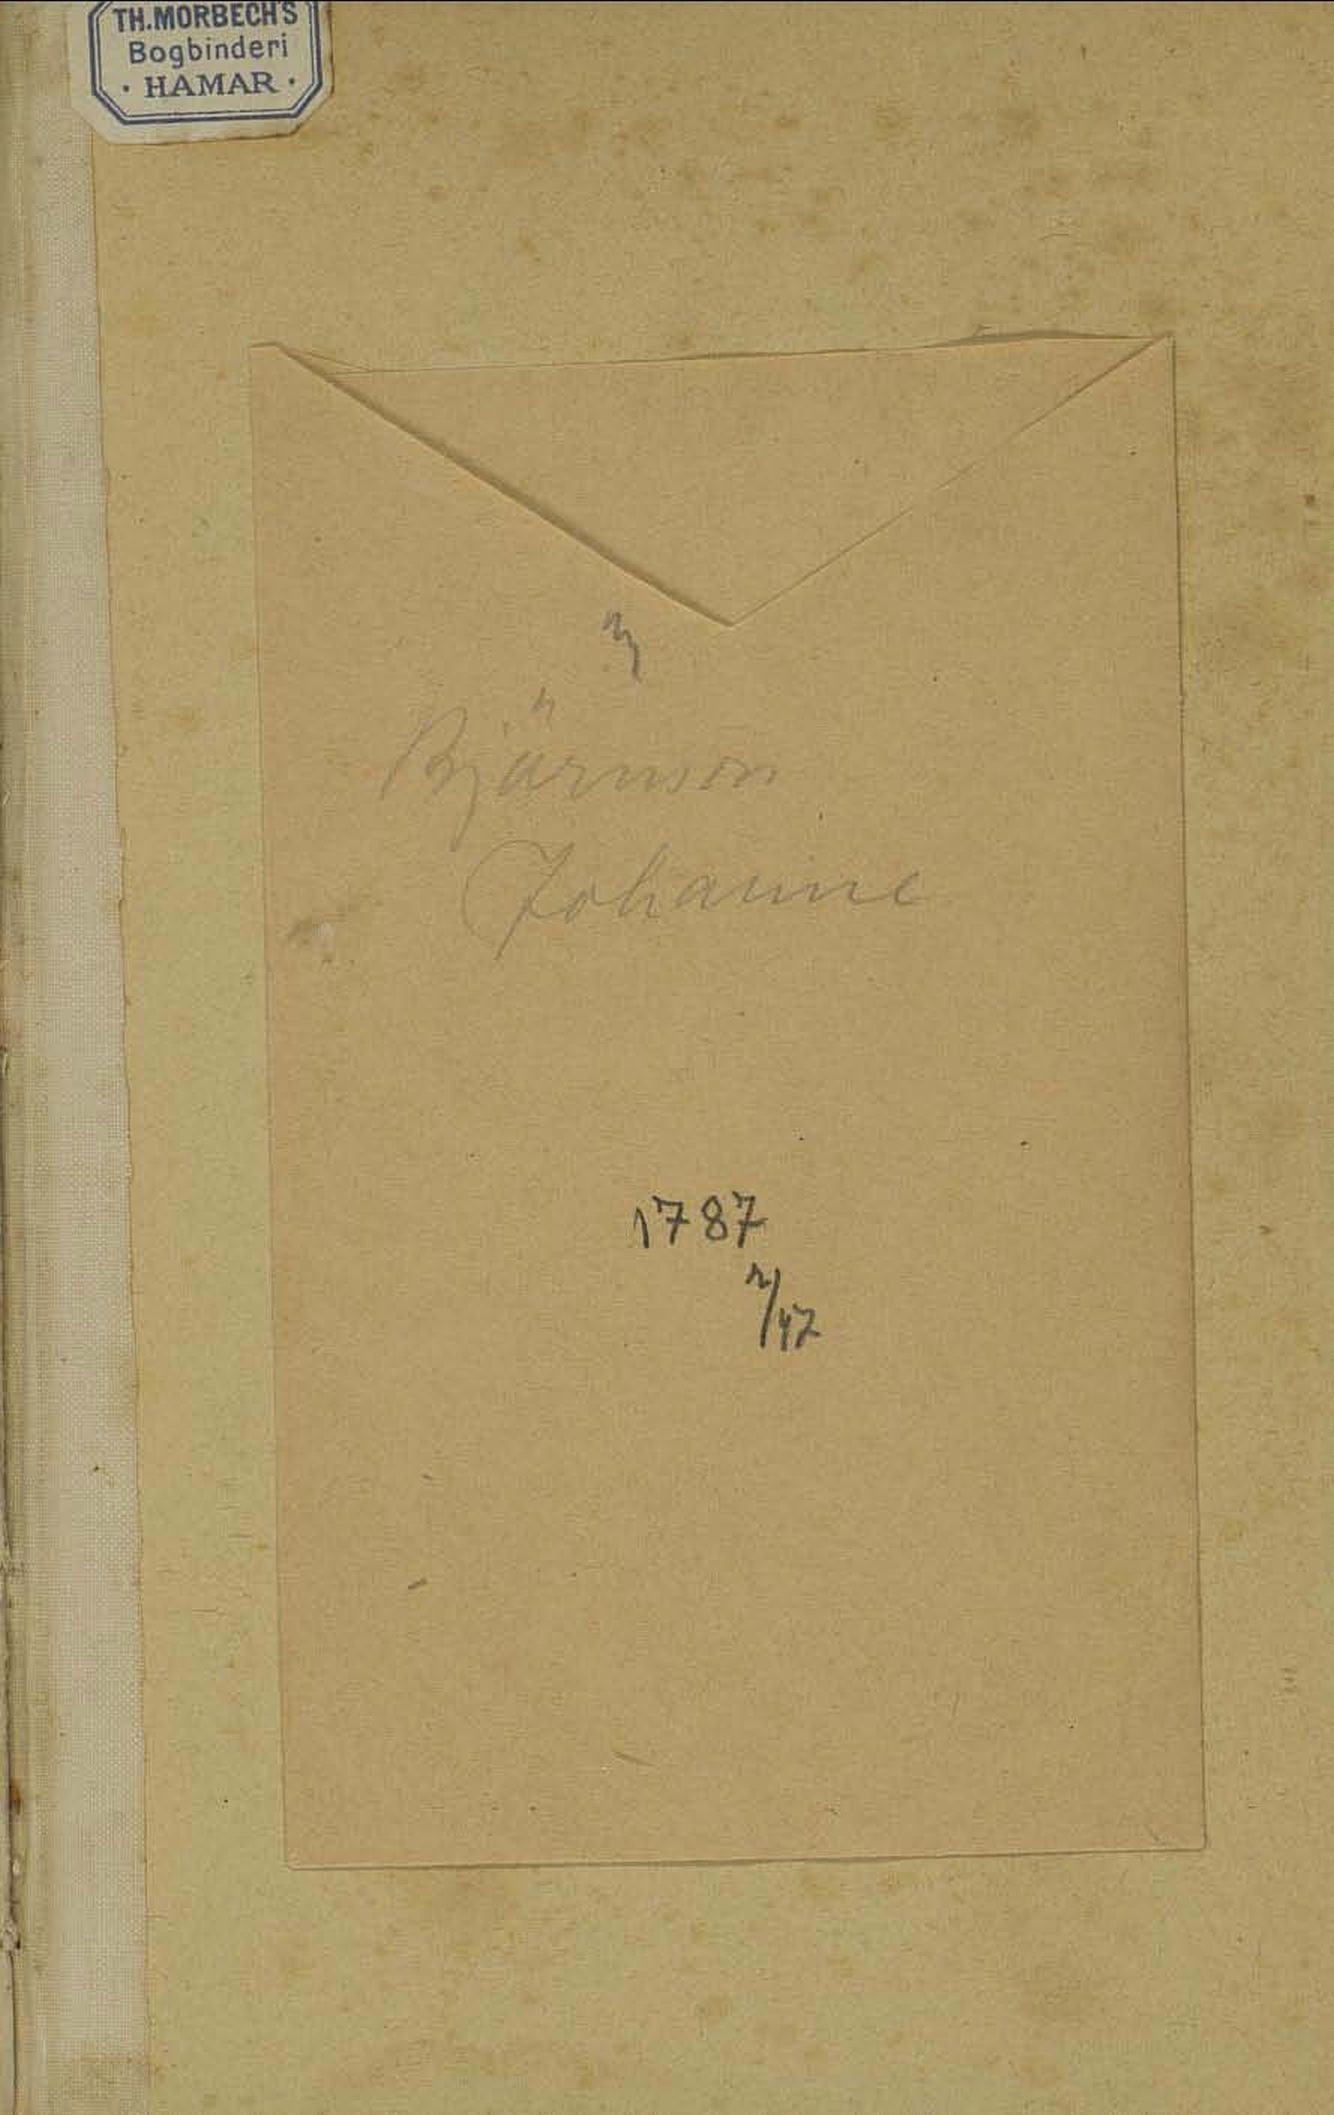 TH.MORBECH'S
Bogbinderi
· HAMAR ·
Bjärnson
Johanne
1787
2/47